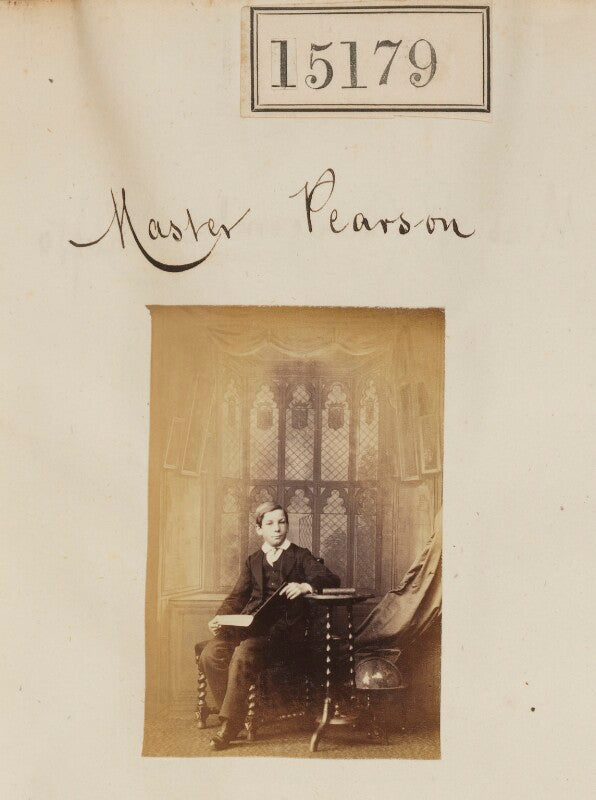 15179
Master Pearson